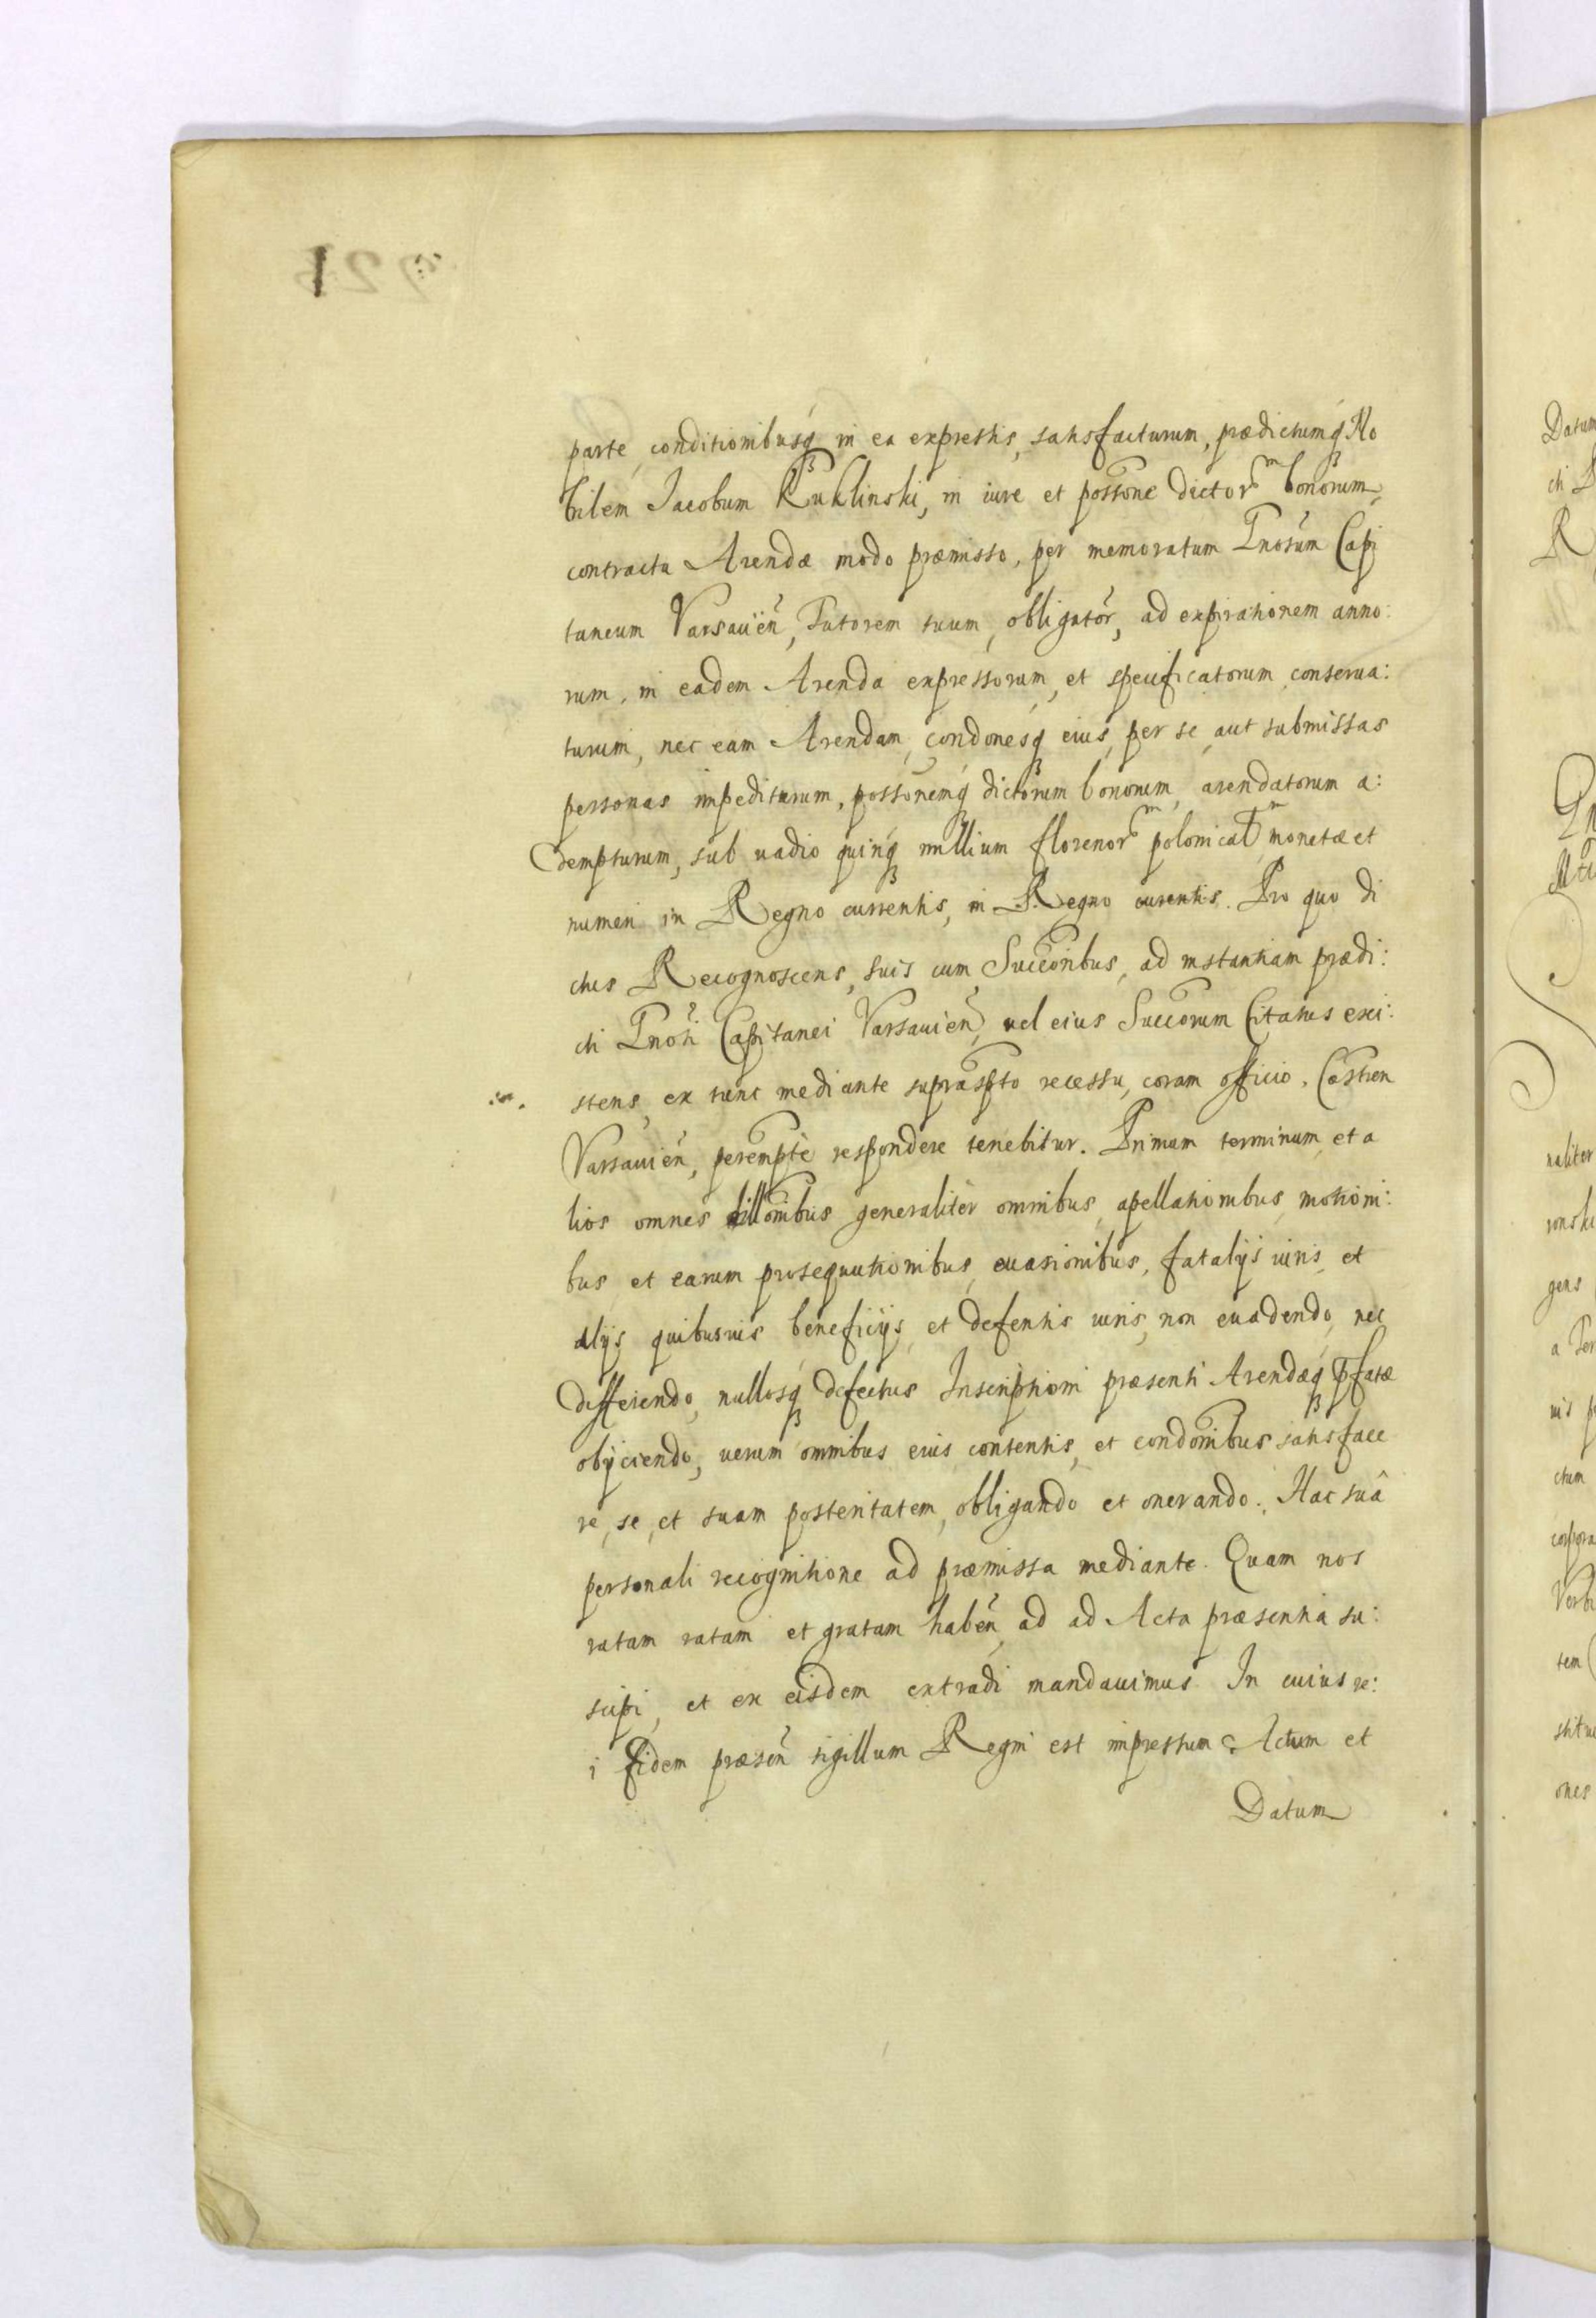 parte, conditionibusq, in ea expressis, satisfacturum, prædictumq No
bilem Jacobum Kuklinski, in iure et possone dictorm bonorum,
contractu Arendæ modo præmisso, per memoratum Gnosum Capi
taneum Varsauien, Tutorem suum, obligator, ad expirationem anno:
rum, in eadem Arenda expressorum, et specificatorum conserua:
turum, nec eam Arendam, condonesq eius, per se, aut submissas
personas impediturum, possonemq dictorum bonorum, arendatorum a:
dempturum, sub uadio quinq millium florenorm polonical monetæ et
numeri in Regno currentis, in Regno curentis. Pro quo di
ctus Recognoscens, suis cum Succoribus, ad instantiam prædi:
cti Gnosi Capitanei Varsauien, uel eius Succorum Citatus exci:
stens, ex tunc mediante suprasspto recessu, coram officio, Castren
Varsauien, perempte respondere tenebitur. Primum terminum, et a
lios omnes dillonibus generaliter omnibus, apellationibus, motioni:
bus et earum prosequutionibus, euasionibus, fatalijs iuris, et
alijs quibusuis beneficijs, et defensis iuris, non euadendo, nec
differendo, nullosq defectus Inscriptioni præsenti Arendæq pfatæ
obijciendo, uerum omnibus eius contentis, et condonibus satisface
re, se, et suam posteritatem, obligando et onerando. Hac suâ
personali recognitione ad præmissa mediante. Quam nos
ratam ratam et gratam haben, ad ad Acta præsentia su:
scipi, et ex eisdem extradi mandauimus. In cuius re:
i fidem præsen sigillum Regni est impressum Actum et
Datum